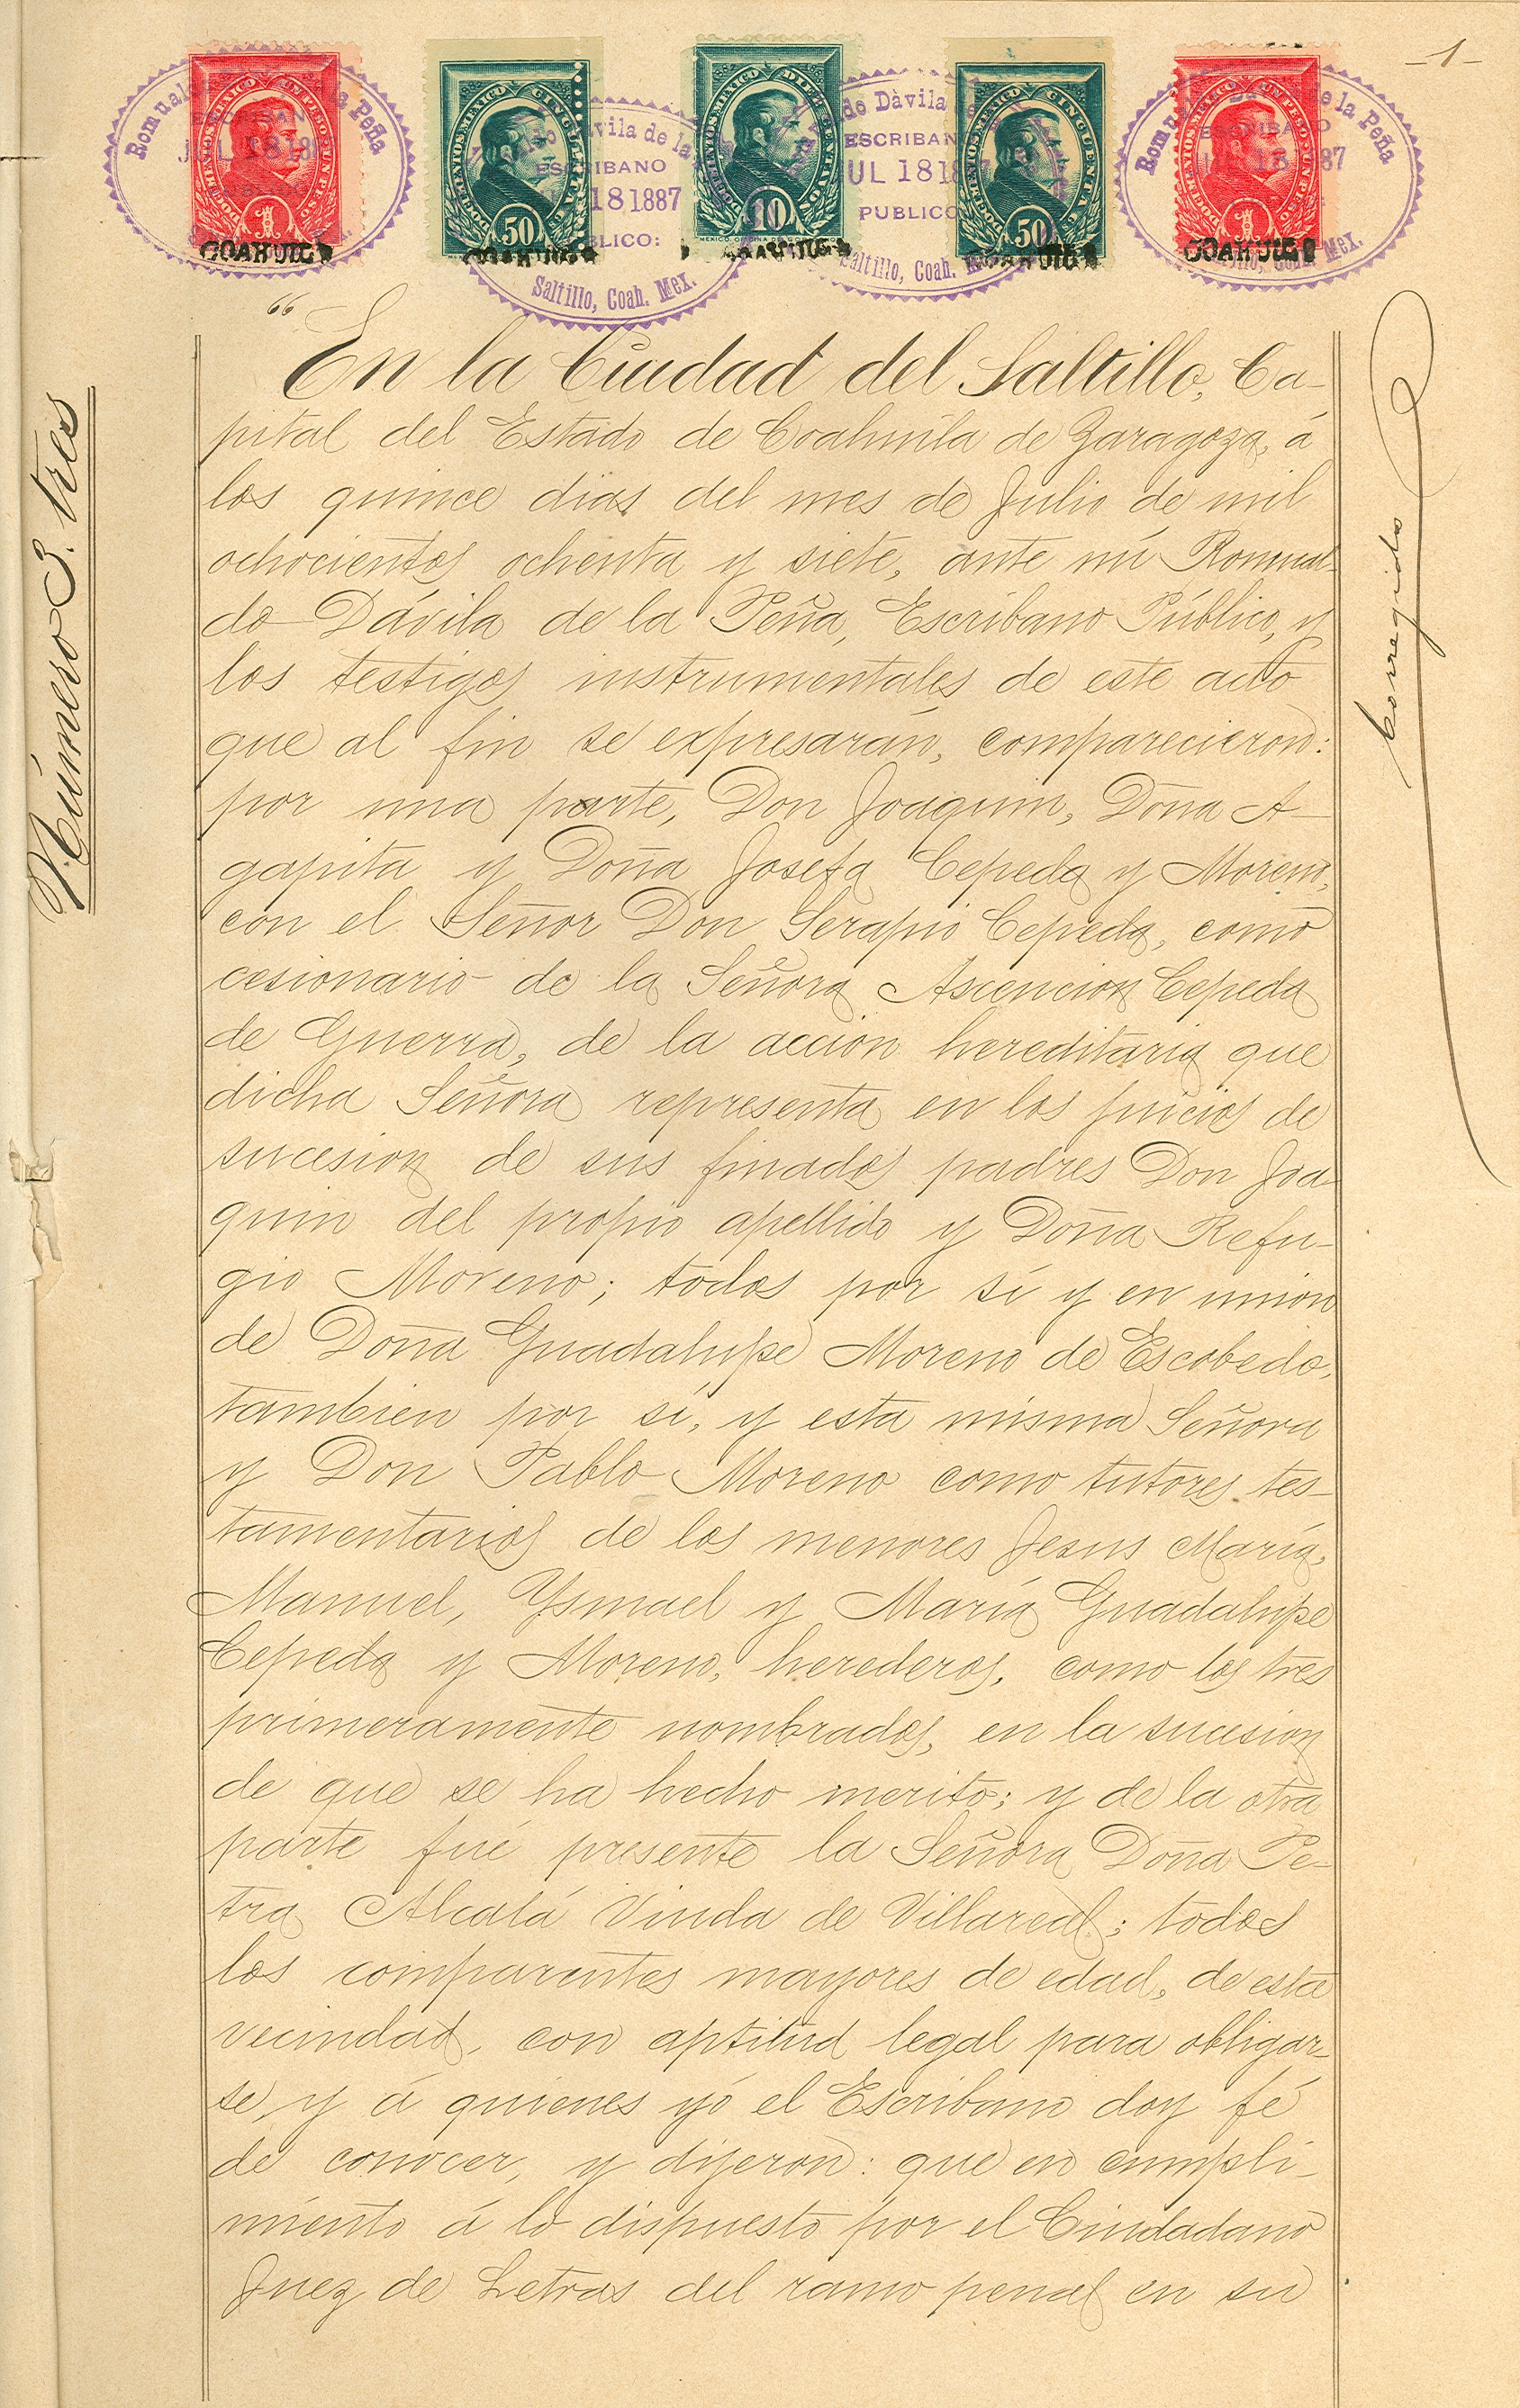 -1-
Romualdo Dàvila de la Peña
ESCRIBANO
JUL 18 1887
PUBLICO:
Saltillo, Coah. Mex.
DOCUMENTOS MEXICO UN PESO UN PESO
1
COAHUILA
DOCUMENTOS MEXICO CINCUENTA C
50
COAHUILA
DOCUMENTOS MEXICO DIEZ CENTAVOS
10
COAHUILA
DOCUMENTOS MEXICO CINCUENTA C
50
COAHUILA
DOCUMENTOS MEXICO UN PESO UN PESO
1
COAHUILA
Número 3. tres
corregido
"En la Ciudad del Saltillo, Ca-
pital del Estado de Coahuila de Zaragoza, á
los quince dias del mes de Julio de mil
ochocientos ochenta y siete, ante mí Romual-
do Dávila de la Peña, Escribano Público, y
los testigos instrumentales de este acto
que al fin se expresarán, comparecieron:
por una parte, Don Joaquin, Doña A-
gapita y Doña Josefa Cepeda y Moreno,
con el Señor Don Serapio Cepeda, como
cesionario de la Señora Ascencion Cepeda
de Guerra, de la acción hereditaria que
dicha Señora representa en los juicios de
sucesion de sus finados padres Don Joa-
quin del propio apellido y Doña Refu-
gio Moreno; todos por sí y en union
de Doña Guadalupe Moreno de Escobedo,
tambien por sí, y esta misma Señora
y Don Pablo Moreno como tutores tes-
tamentarios de los menores Jesus María,
Manuel, Ysmael y María Guadalupe
Cepeda y Moreno, herederos, como los tres
primeramente nombrados, en la sucesion
de que se ha hecho merito; y de la otra
parte fué presente la Señora Doña Pe-
tra Alcalá Viuda de Villareal; todos
los comparentes mayores de edad, de esta
vecindad, con aptitud legal para obligar-
se, y á quienes yó el Escribano doy fé
de conocer, y dijeron: que en cumpli-
miento á lo dispuesto por el Ciudadano
Juez de Letras del ramo penal en su